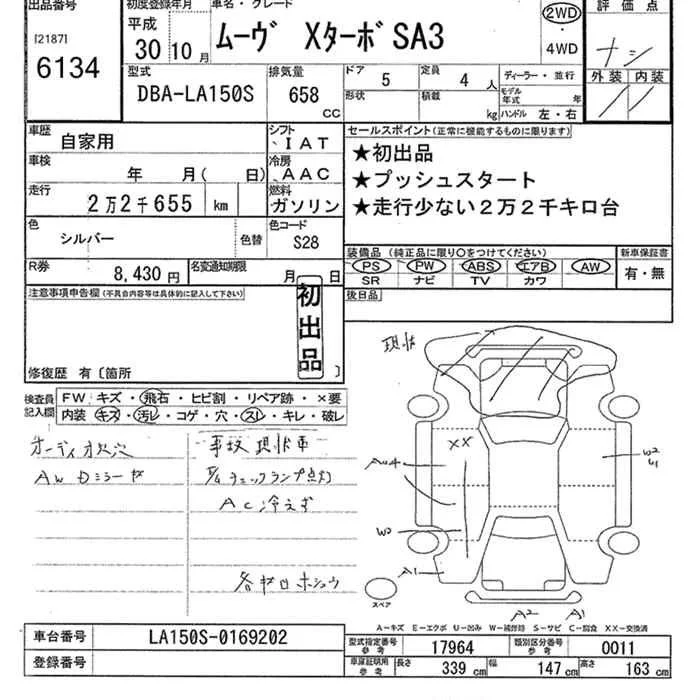 出品番号
[2187]
6134
初度登録年月
平成
30年 10月
車名・グレード
ムーヴ XターボSA3
2WD
・
4WD
評価点
ナシ
外装 内装
型式
DBA-LA150S
排気量
658
CC
ドア 5
定員 4 人
形状
積載 kg
ディーラー・並行
モデル年式 年
ハンドル 左・右
車歴
自家用
シフト
IAT
車検
年 月( 日)
冷房
AAC
走行
2万2千655 km
燃料
ガソリン
色
シルバー
色替
色コード
S28
R券
8,430 円
名変通知期限
月 日
セールスポイント(正常に機能するものに限ります)
★初出品
★プッシュスタート
★走行少ない2万2千キロ台
装備品(純正品に限り○をつけてください)
PS PW ABS エアB AW
SR ナビ TV カワ
新車保証書
有・無
注意事項申告欄(不具合内容等は具体的に記入して下さい)
初出品
後日品
修復歴 有〔箇所 〕
検査員記入欄
FW キズ・飛石・ヒビ割・リペア跡・×要
内装 キズ・汚レ・コゲ・穴・スレ・キレ・破レ
オーディオ欠穴
AW Dミラーキズ
事故現状車
E/G チェックランプ点灯
AC冷えず
現状
XX
A4
W2
A1
W2
U1
A2
A1
スペア
A-キズ E-エクボ U-凹み W-補修跡 S-サビ C-腐食 XX-交換済
車台番号
LA150S-0169202
登録番号
型式指定番号
参考
17964
類別区分番号
参考
0011
車庫証明用
参考
長さ 339 cm
幅 147 cm
高さ 163 cm